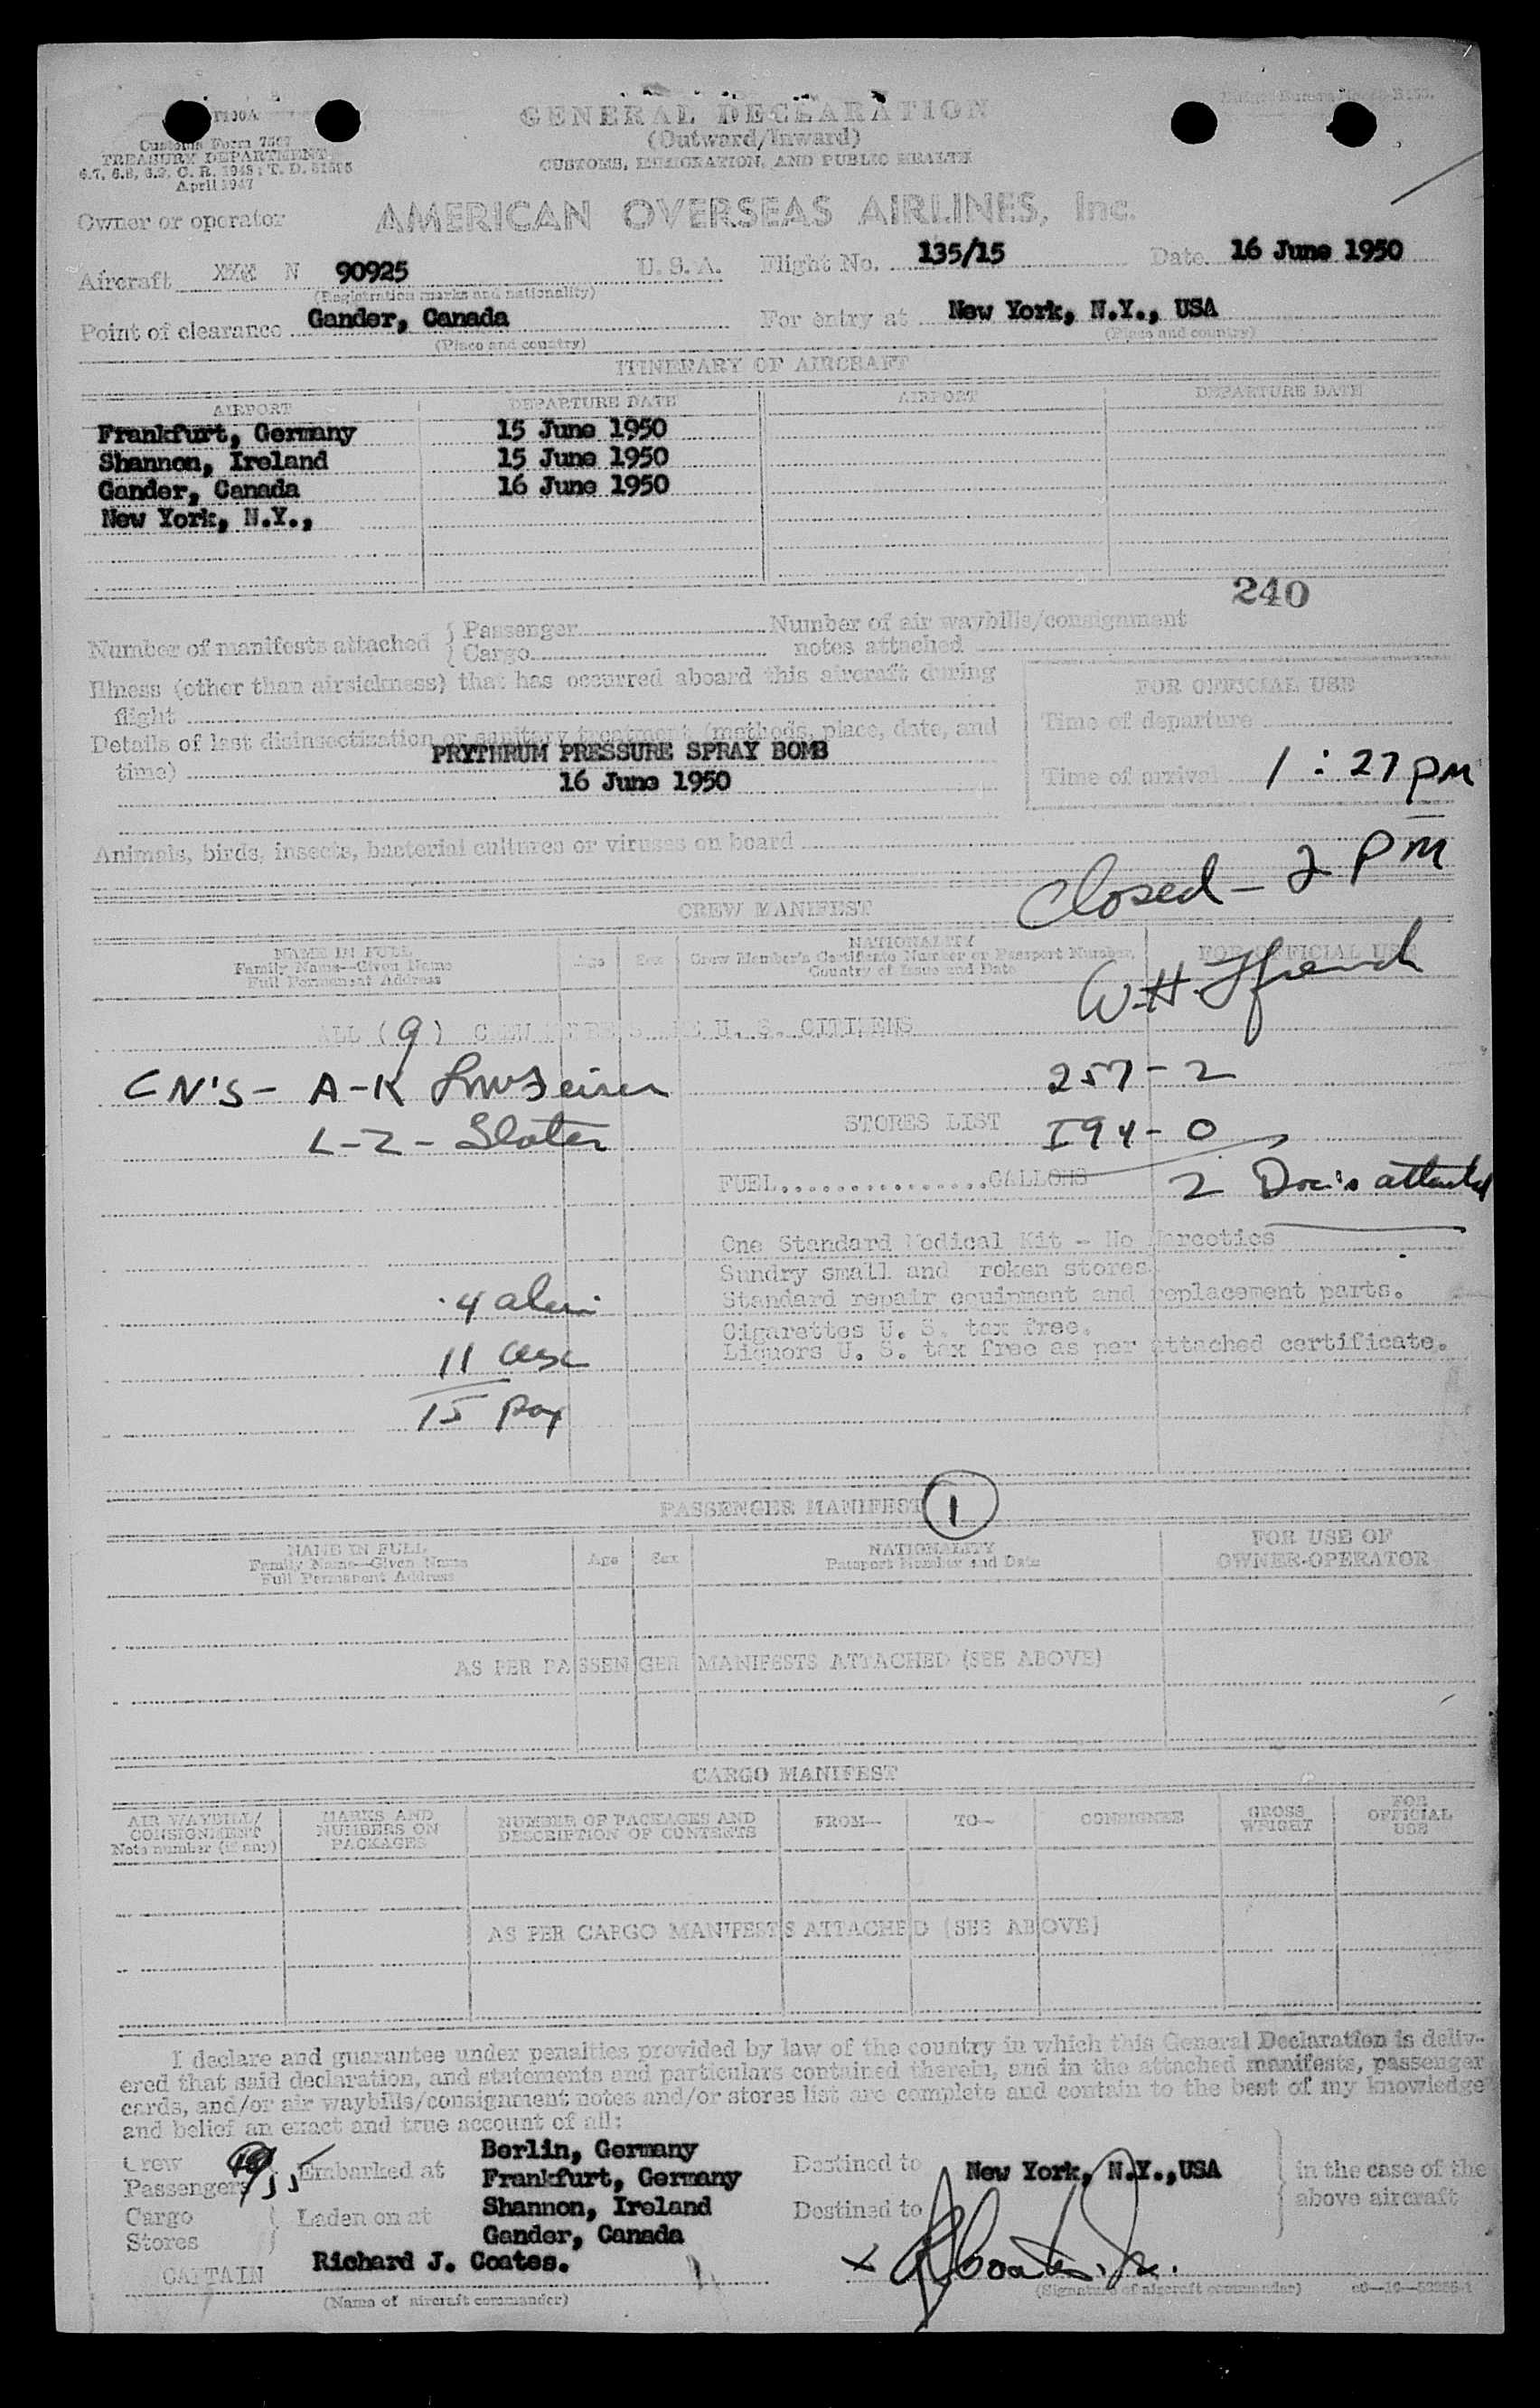 GENERAL DECLARATION
(Outward/Inward)
CUSTOMS, IMMIGRATION, AND PUBLIC HEALTH
Customs Form 7507
TREASURY DEPARTMENT
April 1947
Owner or operator AMERICAN OVERSEAS AIRLINES, Inc.
Aircraft N 90925 U. S. A. Flight No. 135/15 Date 16 June 1950
(Registration marks and nationality)
Point of clearance Gander, Canada For entry at New York, N.Y., USA
(Place and country) (Place and country)
ITINERARY OF AIRCRAFT
AIRPORT DEPARTURE DATE AIRPORT DEPARTURE DATE
Frankfurt, Germany 15 June 1950
Shannon, Ireland 15 June 1950
Gander, Canada 16 June 1950
New York, N.Y.,
240
Number of manifests attached { Passenger Number of air waybills/consignment
{ Cargo notes attached
Illness (other than airsickness) that has occurred aboard this aircraft during
flight
FOR OFFICIAL USE
Time of departure
Details of last disinsectization or sanitary treatment (methods, place, date, and
time) PRYTHRUM PRESSURE SPRAY BOMB
16 June 1950
Time of arrival 1:27 PM
Animals, birds, insects, bacterial cultures or viruses on board
Closed - 2 PM
CREW MANIFEST
NAME IN FULL Age Sex NATIONALITY FOR OFFICIAL USE
Family Name—Given Name Crew Member's Certificate Number or Passport Number,
Full Permanent Address Country of Issue and Date
W.H.
ALL (9) CREW MEMBERS U. S. CITIZENS
CN'S - A-K
257 - 2
L-Z - Slater
STORES LIST
I94 - 0
FUEL................GALLONS
2 Doc's attached
One Standard Medical Kit - No Narcotics
Sundry small and roken stores
Standard repair equipment and replacement parts.
Cigarettes U. S. tax free.
Liquors U. S. tax free as per attached certificate.
4 alien
11
15 pax
PASSENGER MANIFEST 1
NAME IN FULL Age Sex NATIONALITY FOR USE OF
Family Name—Given Name Passport Number and Date OWNER-OPERATOR
Full Permanent Address
AS PER PASSENGER MANIFESTS ATTACHED (SEE ABOVE)
CARGO MANIFEST
AIR WAYBILL/ CONSIGNMENT Note number (if any) MARKS AND NUMBERS ON PACKAGES NUMBER OF PACKAGES AND DESCRIPTION OF CONTENTS FROM— TO— CONSIGNEE GROSS WEIGHT FOR OFFICIAL USE
AS PER CARGO MANIFESTS ATTACHED (SEE ABOVE)
I declare and guarantee under penalties provided by law of the country in which this General Declaration is deliv-
ered that said declaration, and statements and particulars contained therein, and in the attached manifests, passenger
cards, and/or air waybills/consignment notes and/or stores list are complete and contain to the best of my knowledge
and belief an exact and true account of all:
Crew Berlin, Germany
Passengers Embarked at Frankfurt, Germany Destined to New York, N.Y.,USA in the case of the
Cargo Laden on at Shannon, Ireland Destined to above aircraft
Stores Gander, Canada
CAPTAIN Richard J. Coates.
x RJCoates Jr.
(Name of aircraft commander) (Signature of aircraft commander)